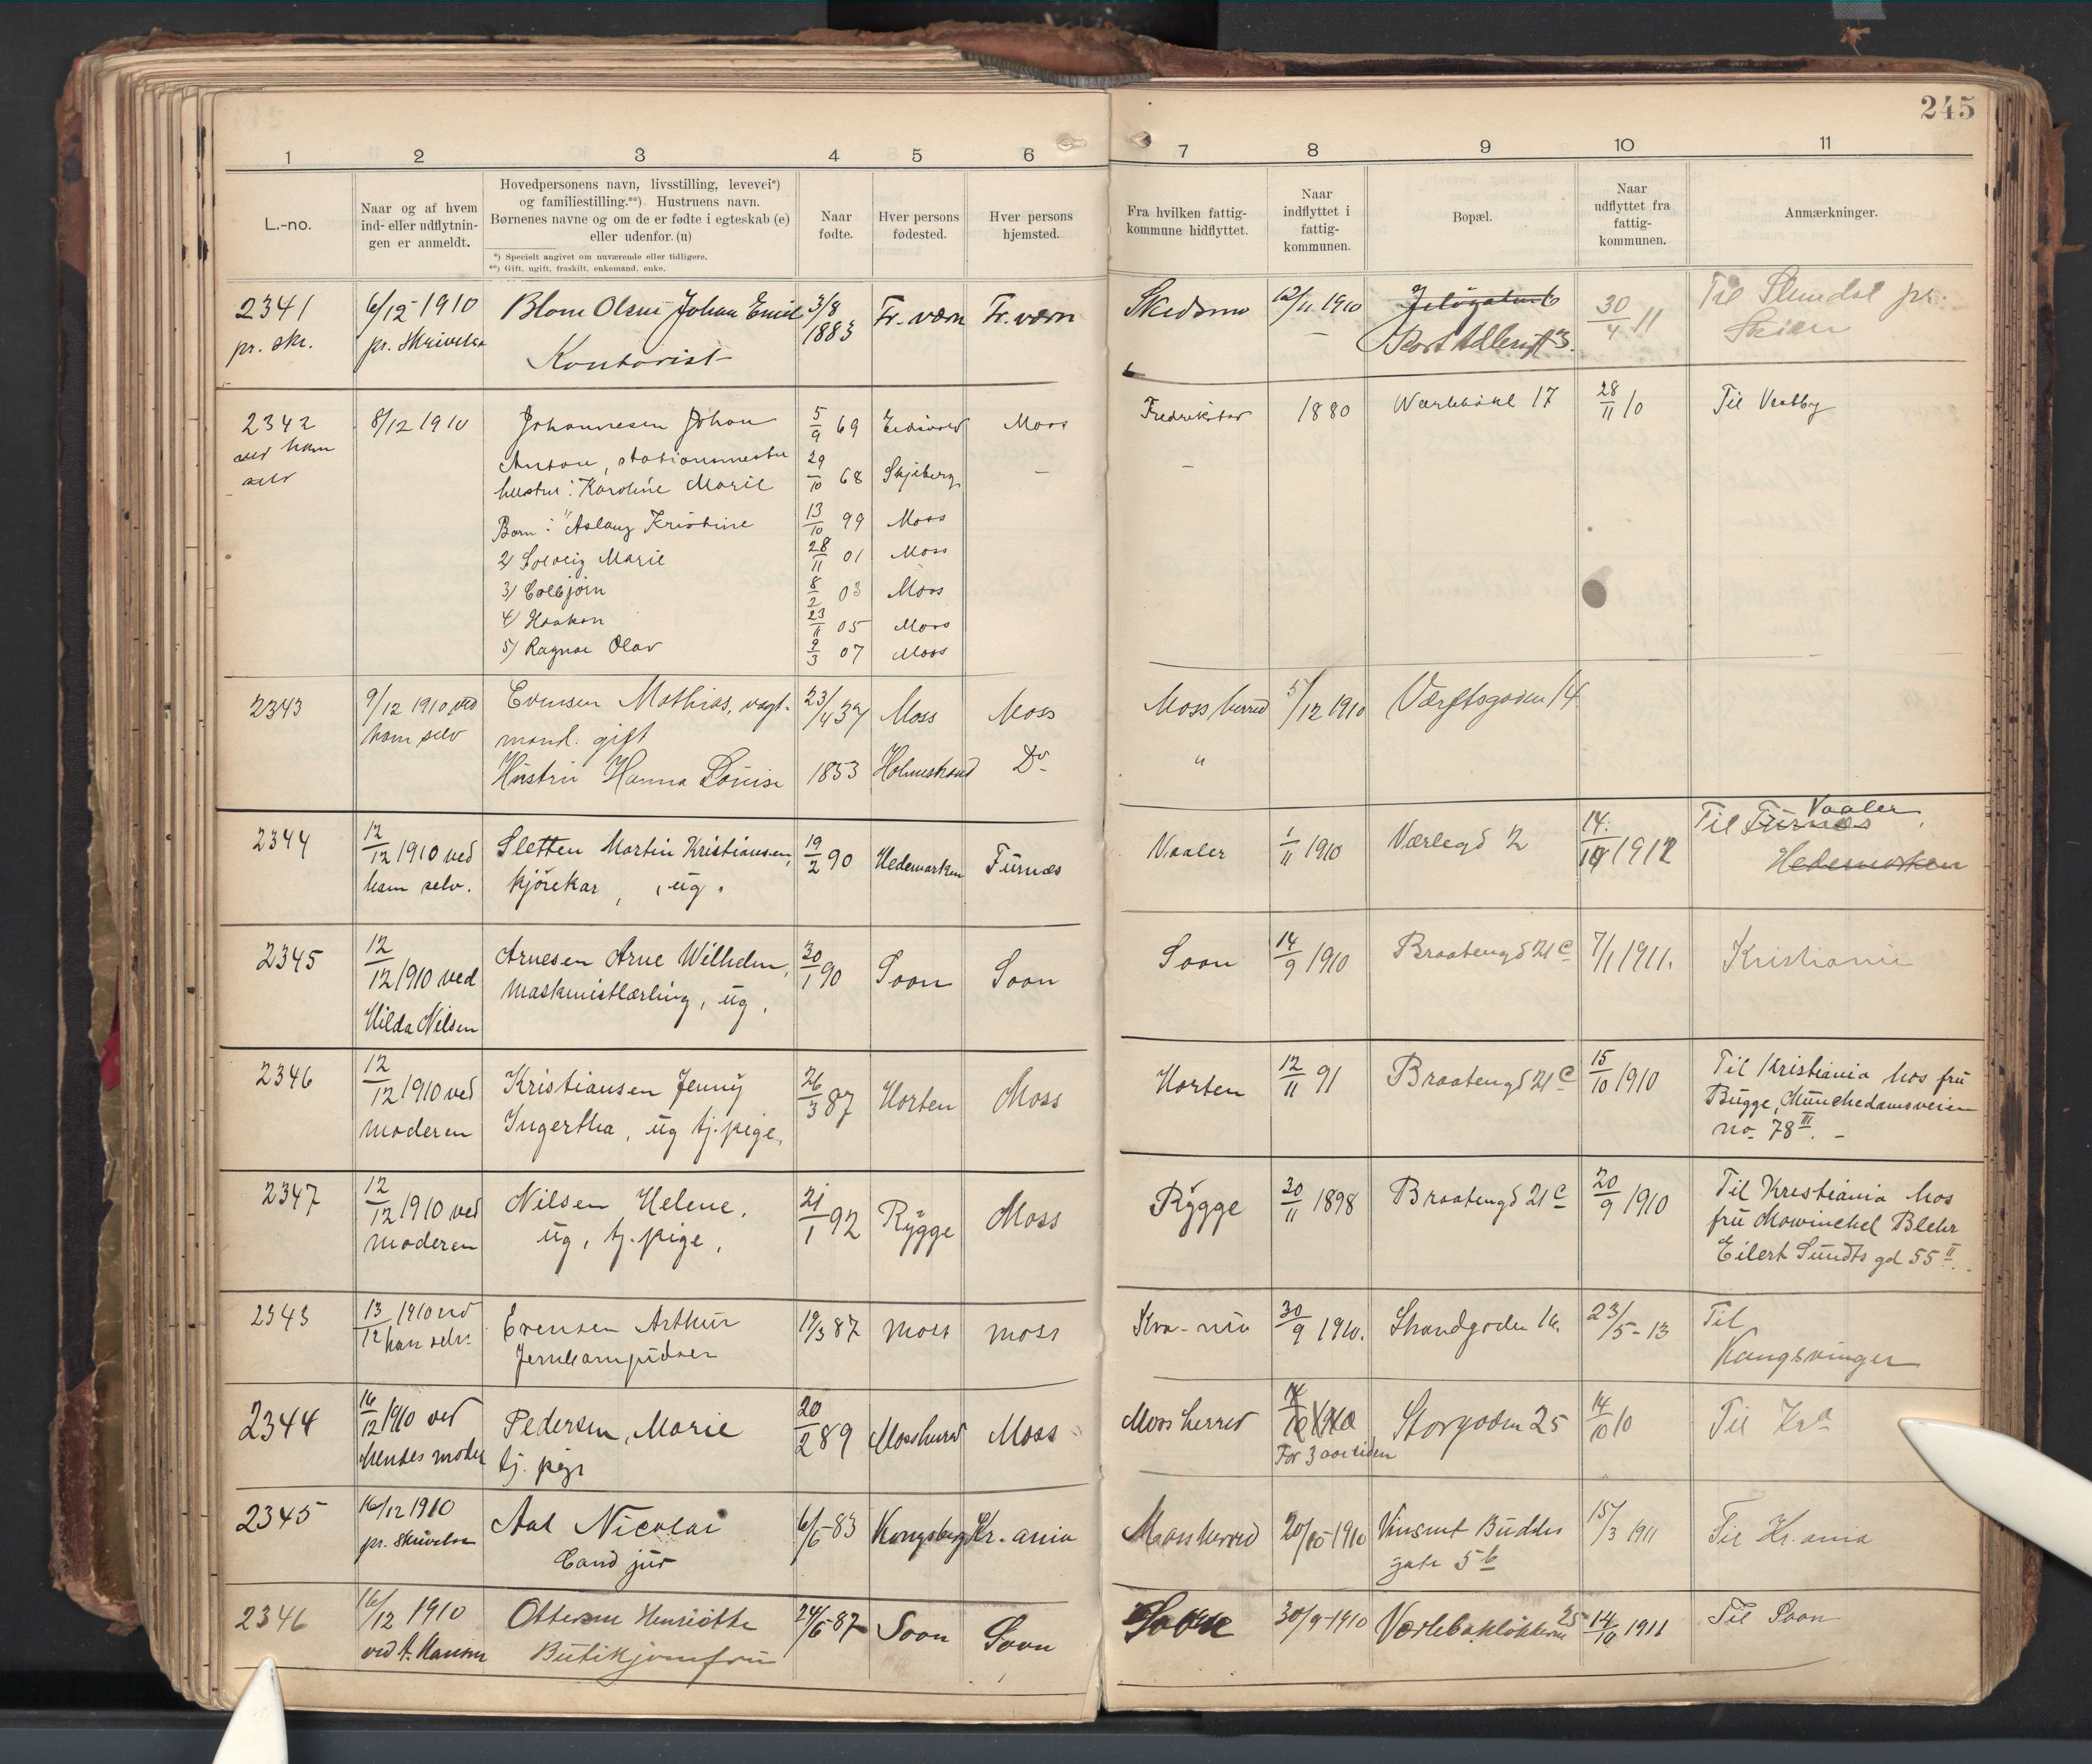 245
1 2 3 4 5 6 7 8 9 10 11
L.-no.
Naar og af hvem
ind- eller udflytnin-
gen er anmeldt.
Hovedpersonens navn, livsstilling, levevei*)
og familiestilling.**) Hustruens navn.
Børnenes navne og om de er fødte i egteskab (e)
eller udenfor. (u)
*) Specielt angivet om nuværende eller tidligere.
**) Gift, ugift, fraskilt, enkemand, enke.
Naar
fødte.
Hver persons
fødested.
Hver persons
hjemsted.
Fra hvilken fattig-
kommune hidflyttet.
Naar
indflyttet i
fattig-
kommunen.
Bopæl.
Naar
udflyttet fra
fattig-
kommunen.
Anmærkninger.
2341 6/12 1910 Blom Olsen Johan Emil 3/8 Fr. værn Fr. værn Skedsmo 12/11 1910 30/4 11 Til
pr. skr. pr. Skrivelse Kontorist 1883 Skien
2342 8/12 1910 Johannesen Johan 5/9 69 Moss Fredrikstad 1880 Værlebakk 17 28/11 10 Til Vestby
ved ham Anton, stationsmester 29/10 68 Skjeberg —
selv hustru: Karoline Marie
Børn: 1/ Aslaug Kristine 13/10 99 Moss
2/ Solveig Marie 28/11 01 Moss
3/ Colbjørn 8/2 03 Moss
4/ Haakon 23/11 05 Moss
5/ Ragnar Olav 2/3 07 Moss
2343 9/12 1910 ved Evensen Mathias, vagt- 23/4 37 Moss Moss Moss herred 5/12 1910 Værftsgaden 14
ham selv mand. gift
Hustru Hanna Louise 1853 Holmestrand Do "
2344 12/12 1910 ved Sletten Martin Kristiansen, 19/2 90 Hedemarken Furnæs Vaaler 1/11 1910 Værlegd 2 14/10 1912 Til Furnæs Vaaler
ham selv. kjørekar, ug. Hedemarken
2345 12/12 1910 ved Arnesen Arne Wilhelm, 30/1 90 Soon Soon Soon 14/9 1910 Braatengd 21 c 7/1 1911. Kristiania
Hilda Nilsen maskinistlærling, ug.
2346 12/12 1910 ved Kristiansen Jenny 26/3 87 Horten Moss Horten 12/11 91 Braatengd 21 c 15/10 1910 Til Kristiania hos fru
moderen Ingertha, ug tj. pige, Bugge, Munchedamsveien
no. 78 III. —
2347 12/12 1910 ved Nilsen Helene, 21/1 92 Rygge Moss Rygge 30/11 1898 Braatengd 21 c 20/9 1910 Til Kristiania hos
moderen ug, tj. pige, fru Mowinckel Blehr
Eilert Sundts gd 55 II.
2343 13/12 1910 ved Evensen Arthur 19/3 87 Moss Moss Kra-nia 30/9 1910. Strandgaden 16. 23/5-13 Til
ham selv. Kongsvinger
2344 16/12 1910 ved Pedersen, Marie 20/2 89 Moss herred Moss Moss herred Storgaden 25 14/10 10 Til Kra
hendes moder tj. pige For 3 aar siden
2345 16/12 1910 Aal Nicolai 6/5 83 Kongsberg Kr. ania Moss herred 20/10-1910 Vincent Buddes 15/3 1911 Til Kr. ania
pr. Skrivelse Cand jur gate 5 b
2346 16/12 1910 Ottersen Henriette 24/5-87 Soon Soon Soon 30/9-1910 Værlebakløkken 25 14/10 1911 Til Soon
ved A. Hansen Butikjomfru